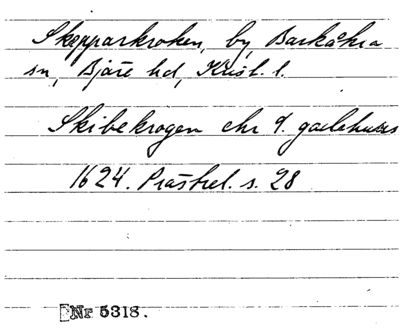 Skepparkroken, by, Barkåkra
sn, Bjäre hd, Krist. l.
Skibekrogen ehr 9. gadehuus
1624. Prästrel. s. 28
Nr 5318.